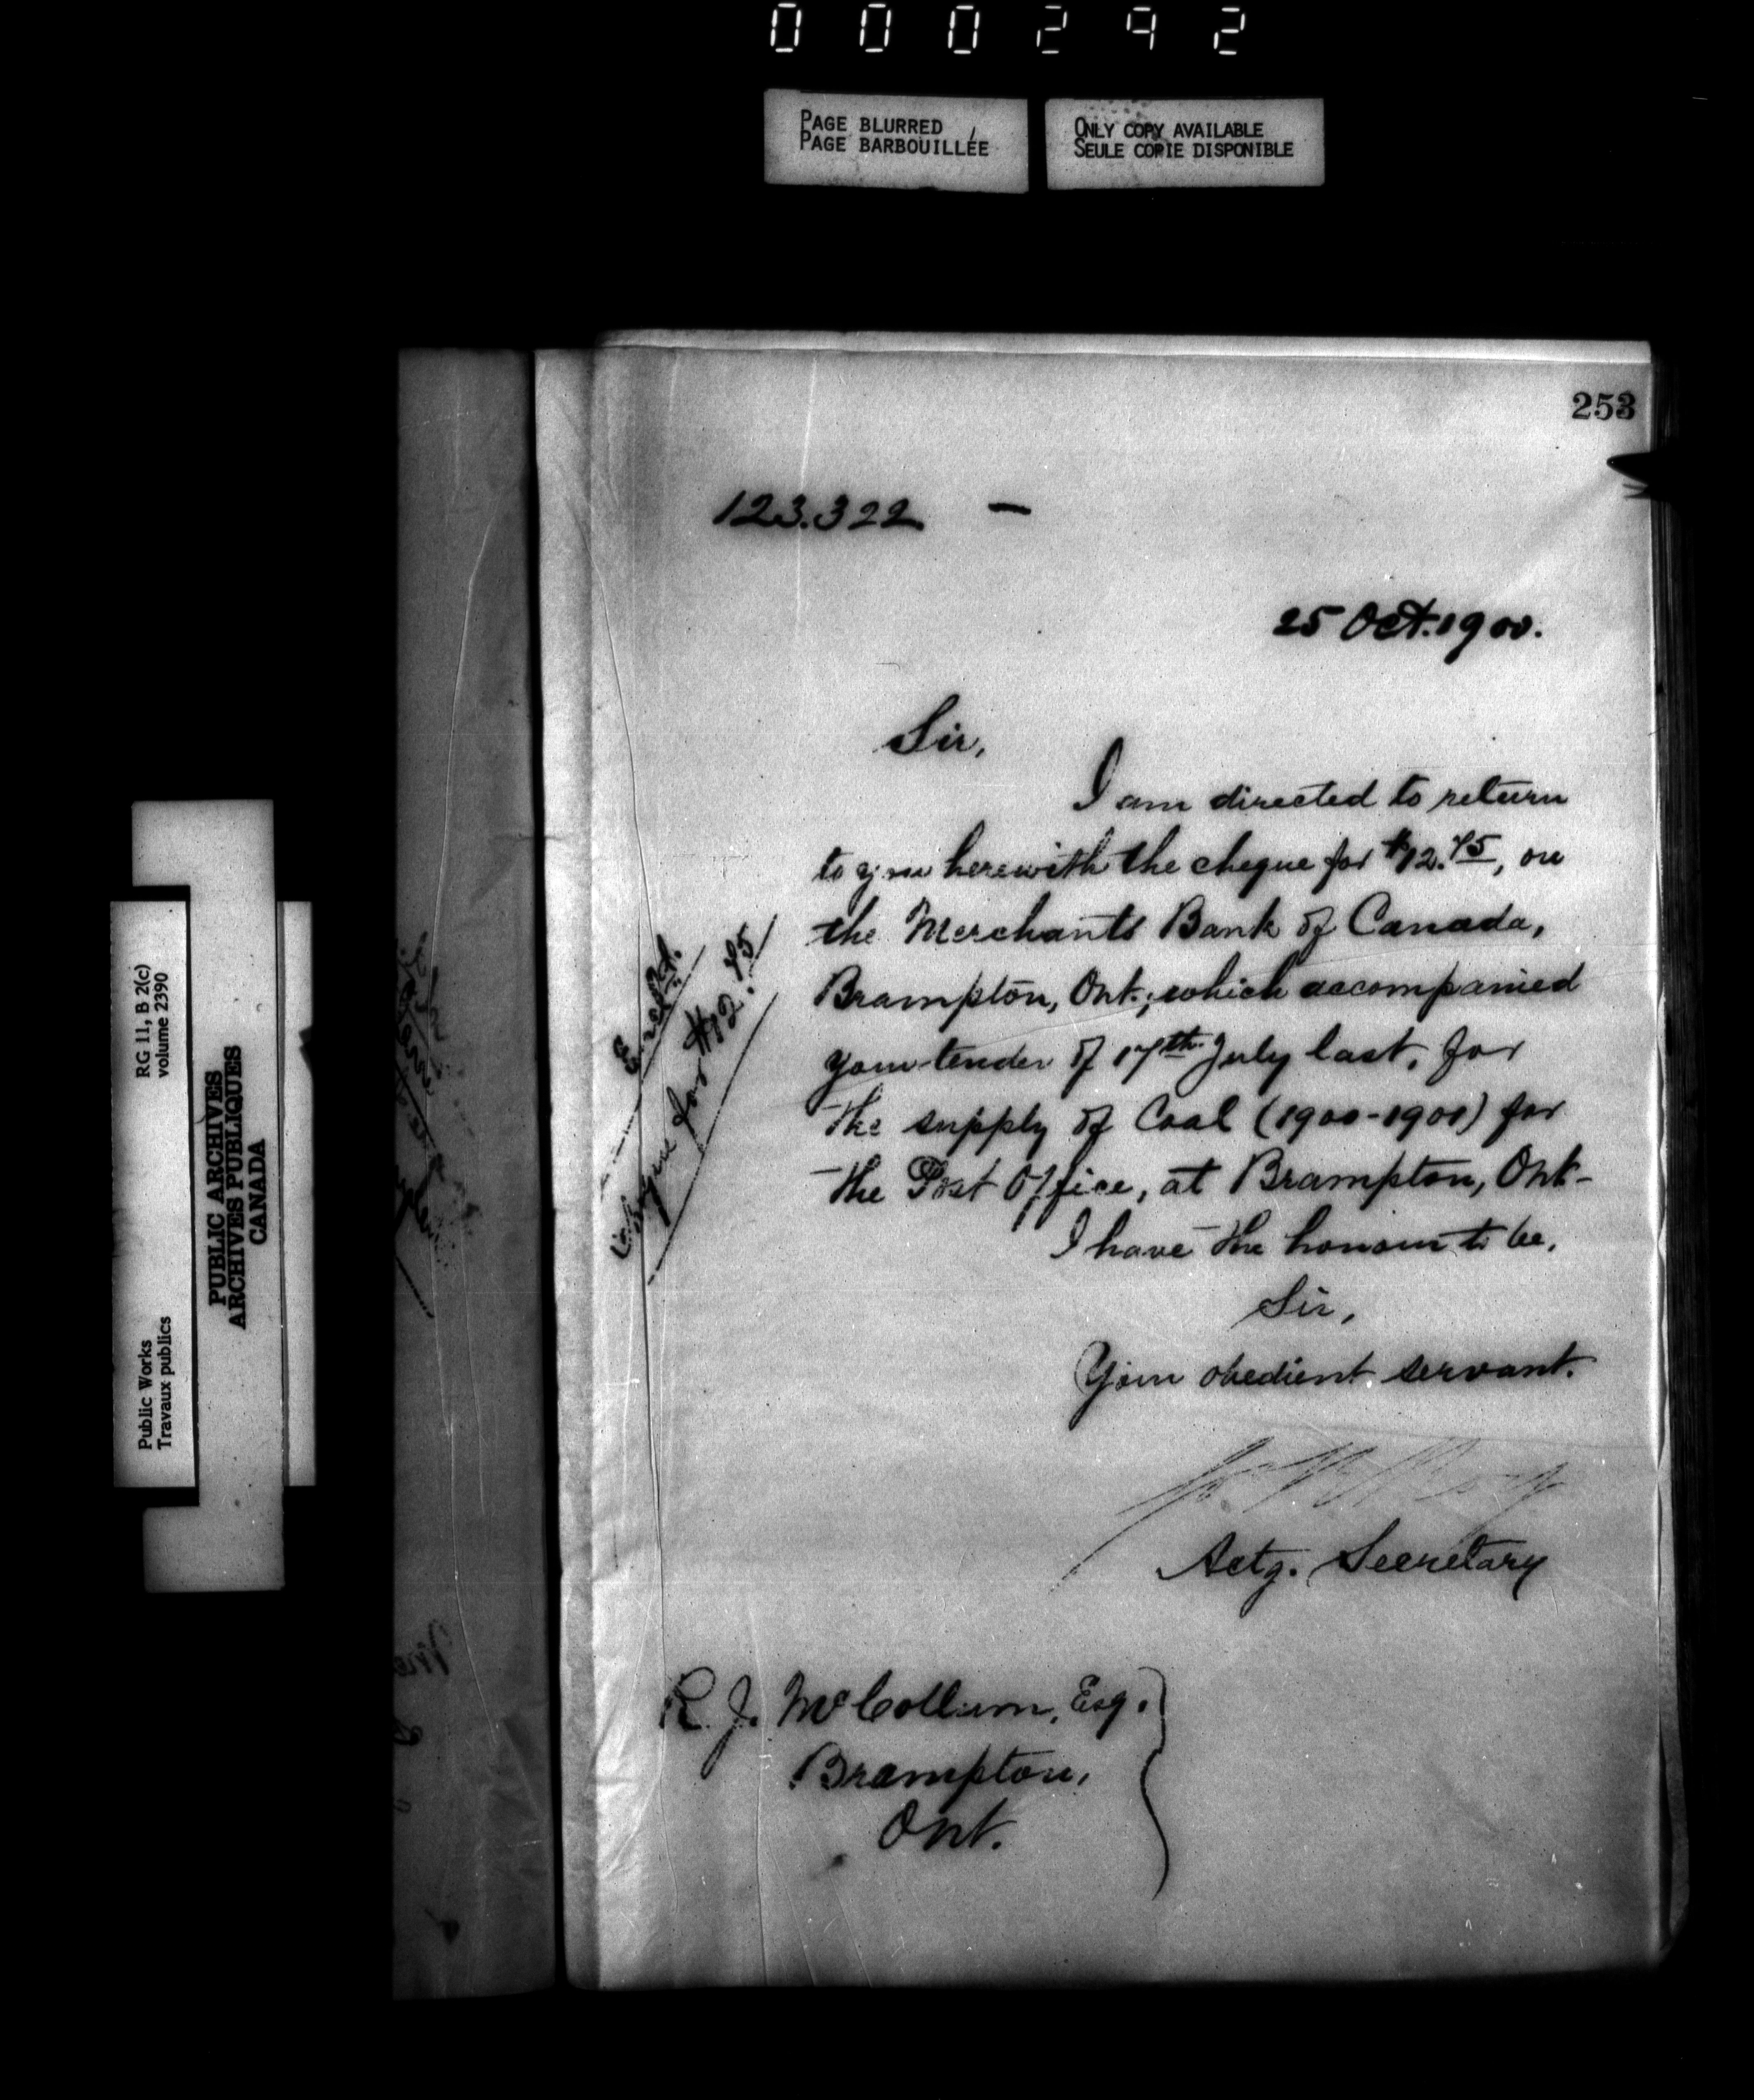 000292
PAGE BLURRED
PAGE BARBOUILLÉE
ONLY COPY AVAILABLE
SEULE COPIE DISPONIBLE
253
123.322 —
25 Oct. 1900.
Sir,
I am directed to return
to you herewith the cheque for $12.75, on
the Merchants Bank of Canada,
Brampton, Ont., which accompanied
your tender of 17th July last, for
the supply of Coal (1900-1901) for
the Post Office, at Brampton, Ont-
I have the honour to be,
Sir,
Your obedient servant.
Actg. Secretary
R. J. McCollum, Esq.
Brampton,
Ont.
for $12.75
RG 11, B 2(c)
volume 2390
Public Works
Travaux publics
PUBLIC ARCHIVES
ARCHIVES PUBLIQUES
CANADA